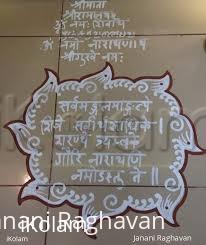 श्रीमाता
श्रीरामजयम्
ॐ नमः शिवाय
ॐ नमो नारायणाय
श्रीगुरवे नमः
सर्वमङ्गलमाङ्गल्ये
शिवे सर्वार्थसाधिके।
शरण्ये त्र्यम्बके
गौरि नारायणि
नमोऽस्तु ते॥
iKolam
Janani Raghavan
iKolam
Janani Raghavan